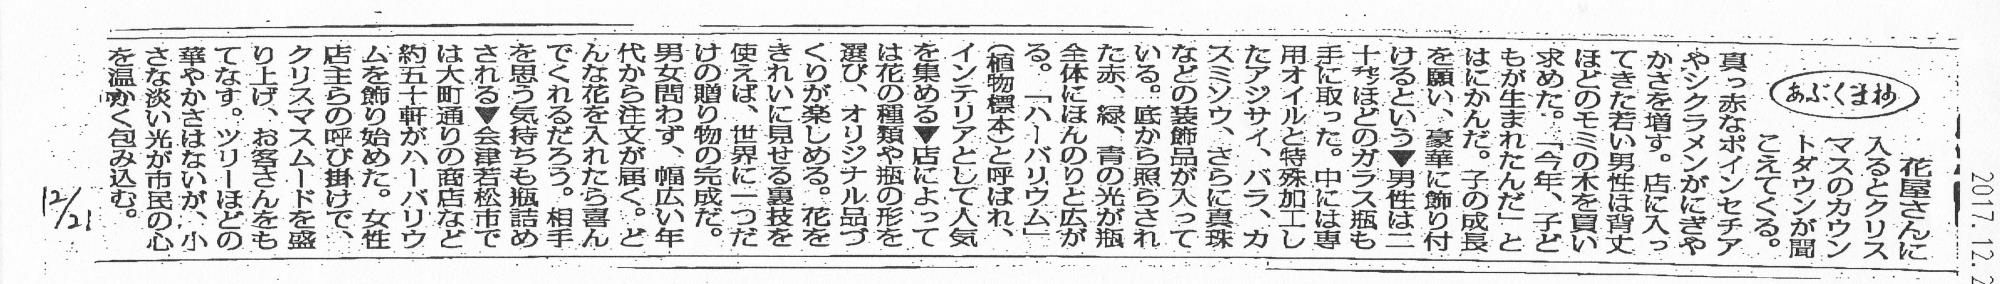 あぶくま抄
花屋さんに
入るとクリス
マスのカウン
トダウンが聞
こえてくる。
真っ赤なポインセチア
やシクラメンがにぎや
かさを増す。店に入っ
てきた若い男性は背丈
ほどのモミの木を買い
求めた。「今年、子ど
もが生まれたんだ」と
はにかんだ。子の成長
を願い、豪華に飾り付
けるという▼男性は二
十㌢ほどのガラス瓶も
手に取った。中には専
用オイルと特殊加工し
たアジサイ、バラ、カ
スミソウ、さらに真珠
などの装飾品が入って
いる。底から照らされ
た赤、緑、青の光が瓶
全体にほんのりと広が
る。「ハーバリウム」
(植物標本)と呼ばれ、
インテリアとして人気
を集める▼店によって
は花の種類や瓶の形を
選び、オリジナル品づ
くりが楽しめる。花を
きれいに見せる裏技を
使えば、世界に一つだ
けの贈り物の完成だ。
男女問わず、幅広い年
代から注文が届く。ど
んな花を入れたら喜ん
でくれるだろう。相手
を思う気持ちも瓶詰め
される▼会津若松市で
は大町通りの商店など
約五十軒がハーバリウ
ムを飾り始めた。女性
店主らの呼び掛けで、
クリスマスムードを盛
り上げ、お客さんをも
てなす。ツリーほどの
華やかさはないが、小
さな淡い光が市民の心
を温かく包み込む。
12/21
2017.12.2